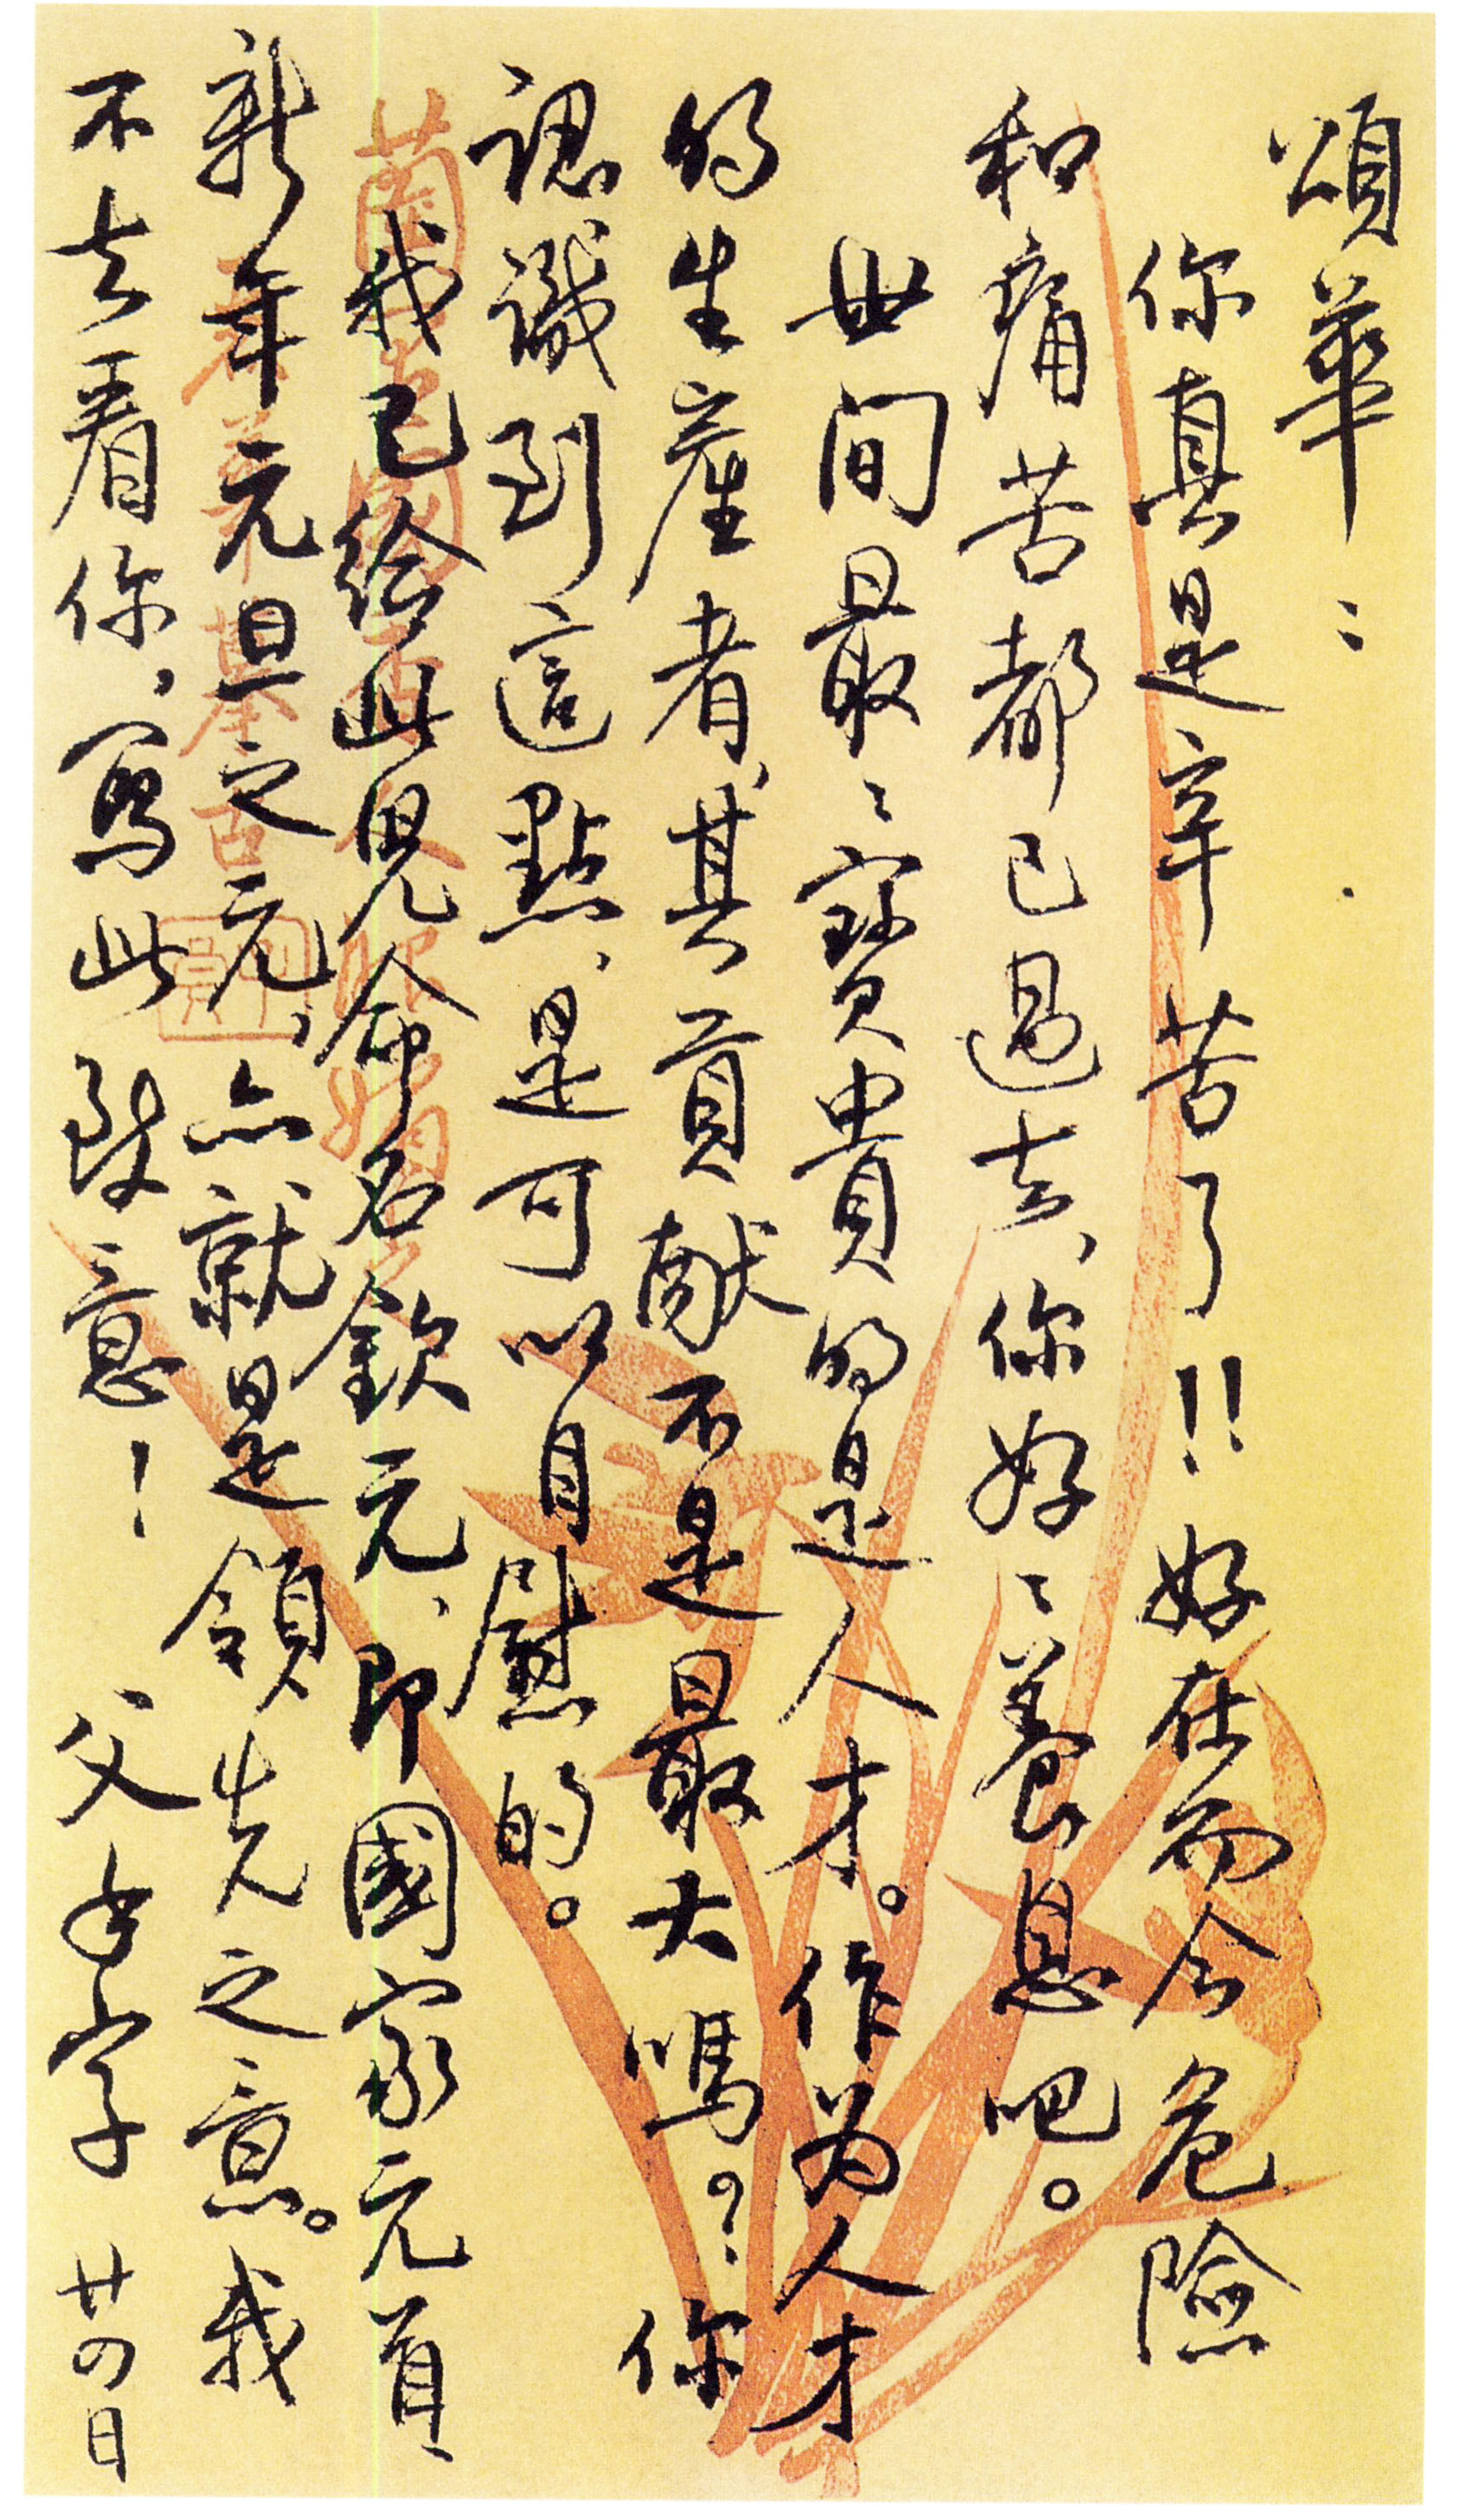 頌華：
你真是辛苦了!!好在而今危險
和痛苦都已過去、你好〻養息吧。
世间最〻寶貴的是人才。作为人才
的生産者、其貢献不是最大嗎？你
認識到這點、是可以自慰的。
我已给此児命名欽元、即國家元首、
新年元旦之元、亦就是領先之意。我
不去看你、寫此 致意！ 父手字 廿四日